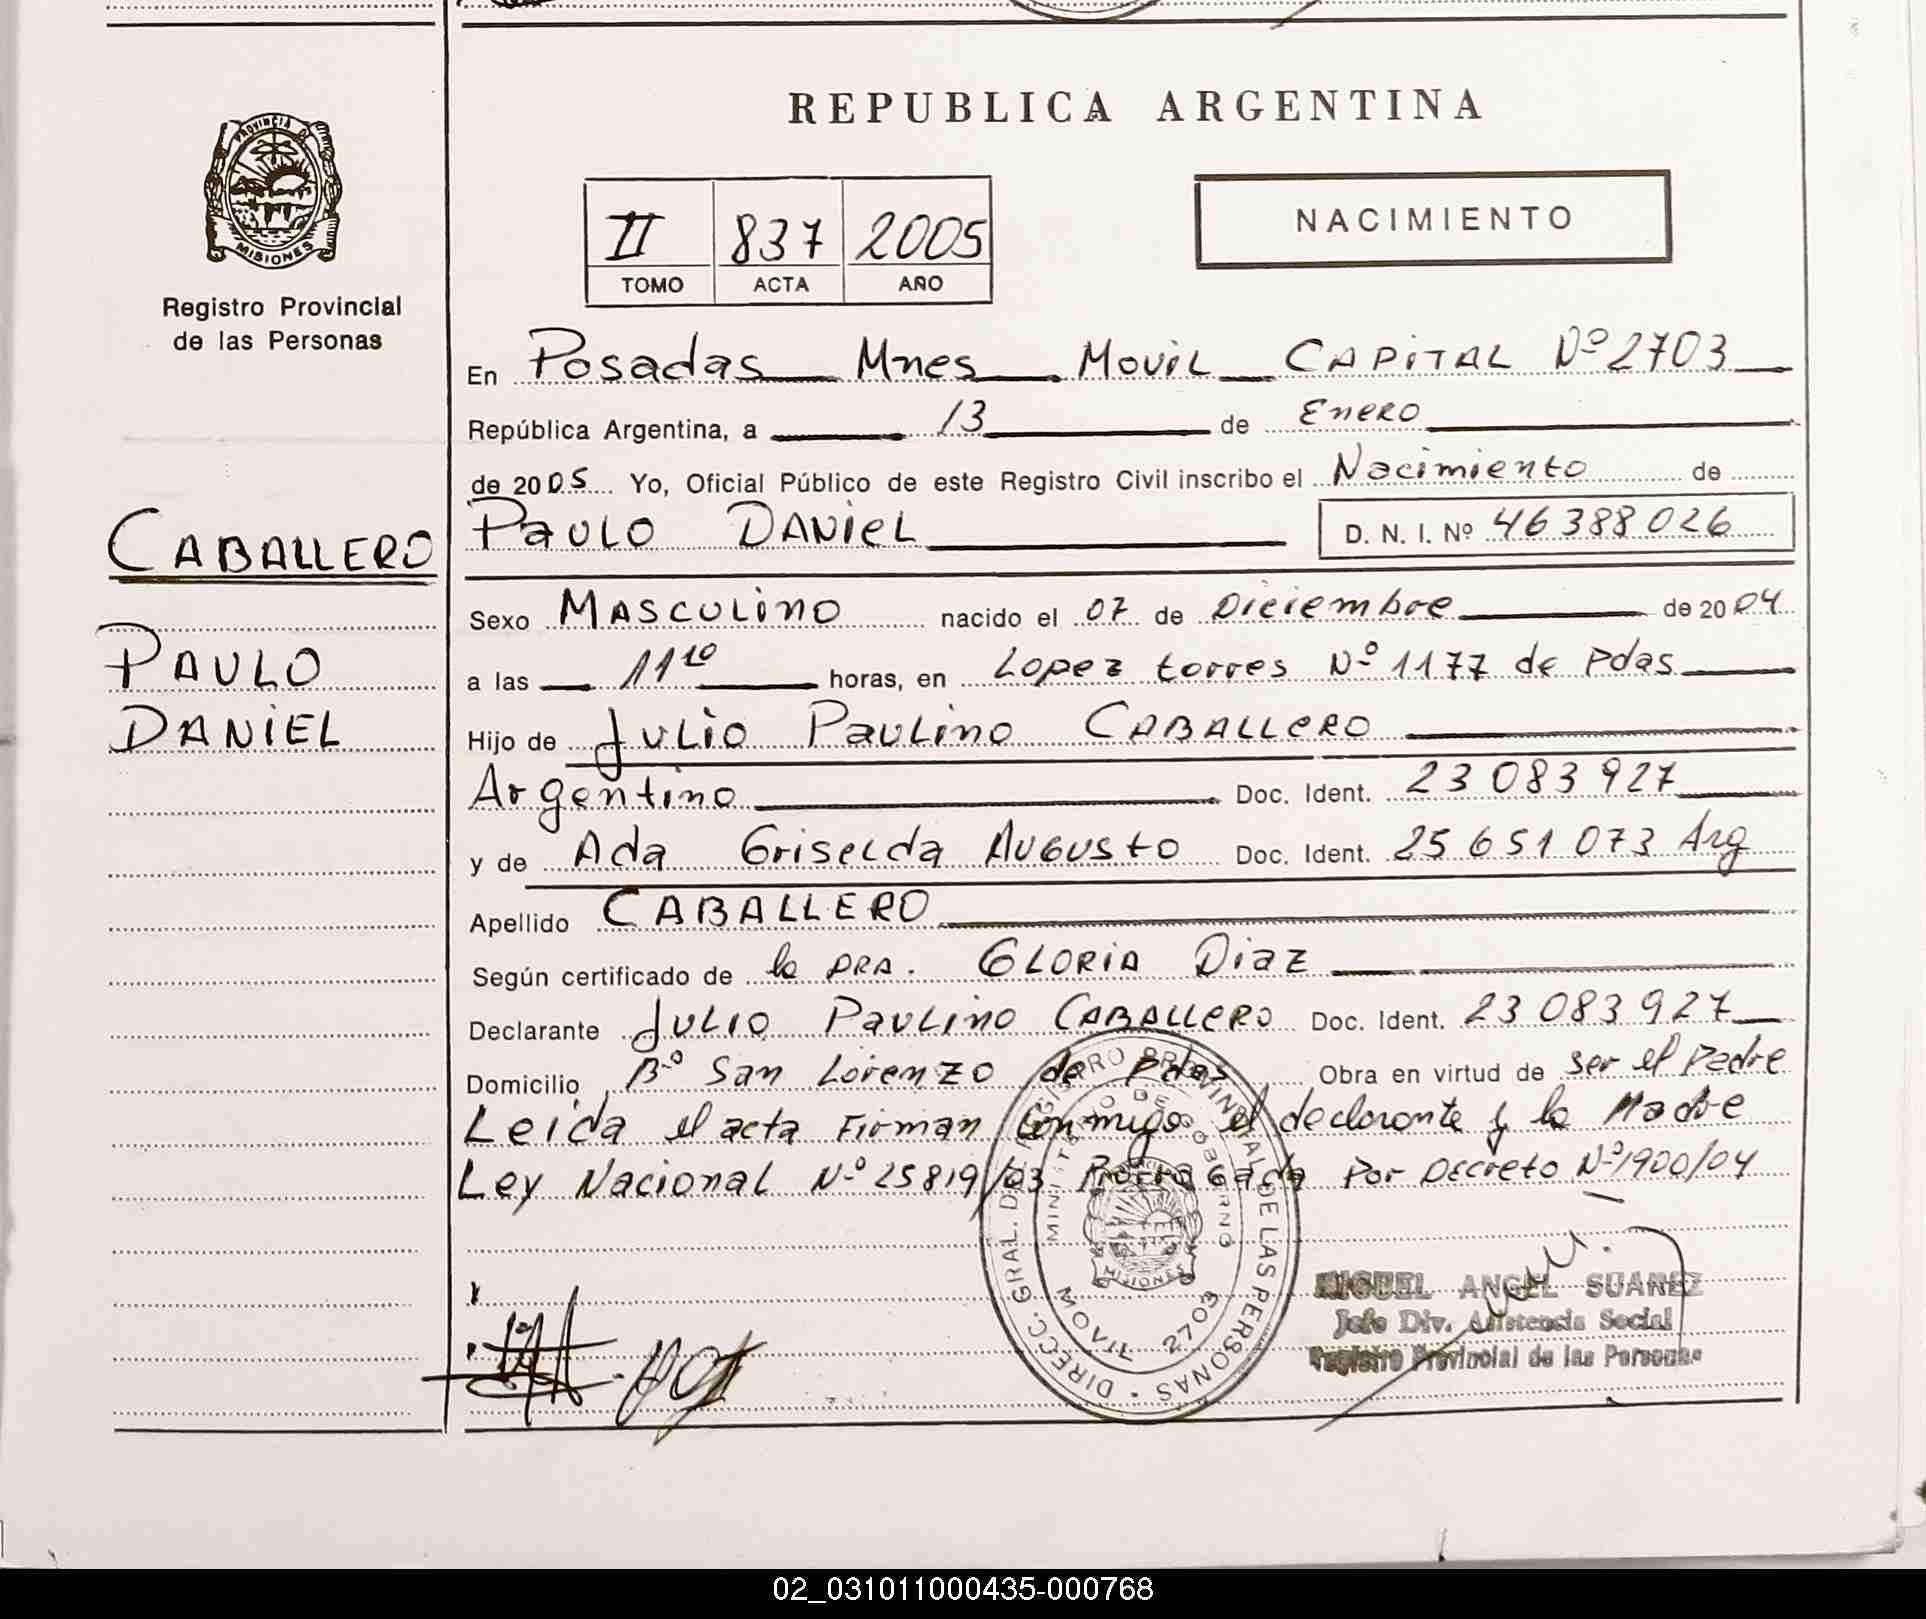 REPUBLICA ARGENTINA
PROVINCIA D
MISIONES
Registro Provincial
de las Personas
II 837 2005
TOMO ACTA AÑO
NACIMIENTO
En Posadas Mnes Movil CAPITAL Nº 2703
República Argentina, a 13 de Enero
de 2005 Yo, Oficial Público de este Registro Civil inscribo el Nacimiento de
CABALLERO
PAULO DANIEL D. N. I. Nº 46388026
PAULO
DANIEL
Sexo MASCULINO nacido el 07 de Diciembre de 2004
a las 11 10 horas, en Lopez torres Nº 1177 de Pdas
Hijo de JULIO PAULINO CABALLERO
Argentino Doc. Ident. 23 083 927
y de Ada Griselda Augusto Doc. Ident. 25 651 073 Arg
Apellido CABALLERO
Según certificado de la DRA. GLORIA Diaz
Declarante JULIO PAULINO CABALLERO Doc. Ident. 23 083 927
Domicilio Bº San Lorenzo de Pdas Obra en virtud de ser el Padre
Leida el acta Firman conmigo el declarante y la Madre
Ley Nacional Nº 25819/03 Prorrogada Por Decreto Nº 1900/04
DIRECC. GRAL. DEL REGISTRO PROVINCIAL DE LAS PERSONAS
MINISTERIO DE GOBIERNO
MISIONES
MOVIL 2703
MIGUEL ANGEL SUAREZ
Jefe Div. Asistencia Social
Registro Provincial de las Personas
02_031011000435-000768